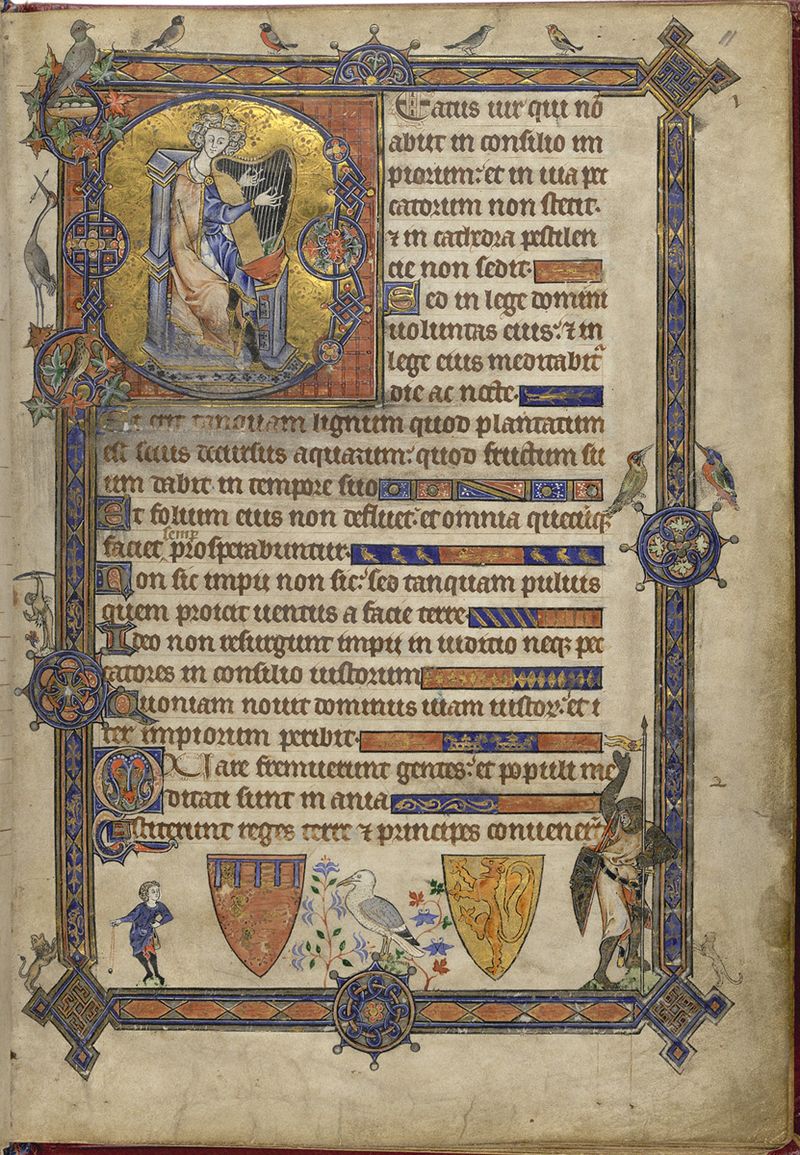 Eatus uir qui nō
abiit in consilio im
piorum: et in uia pec
catorum non stetit.
⁊ in cathedra pestilen
cie non sedit.
Sed in lege domini
uoluntas eius: ⁊ in
lege eius meditabit᷑
die ac nocte.
Et erit tanquam lignum quod plantatum
est secus decursus aquarum: quod fructum su
um dabit in tempore suo
Et folium eius non defluet: et omnia quecūqꝫ
faciet semp̄ prosperabuntur.
Non sic impii non sic: sed tanquam puluis
quem proicit uentus a facie terre
Ideo non resurgunt impii in iudicio neqꝫ pec
catores in consilio iustorum
Quoniam nouit dominus uiam iustoꝝ: et i
ter impiorum peribit.
Quare fremuerunt gentes: et populi me
ditati sunt inania
Astiterunt reges terre ⁊ principes conuener̄t
11
1
2